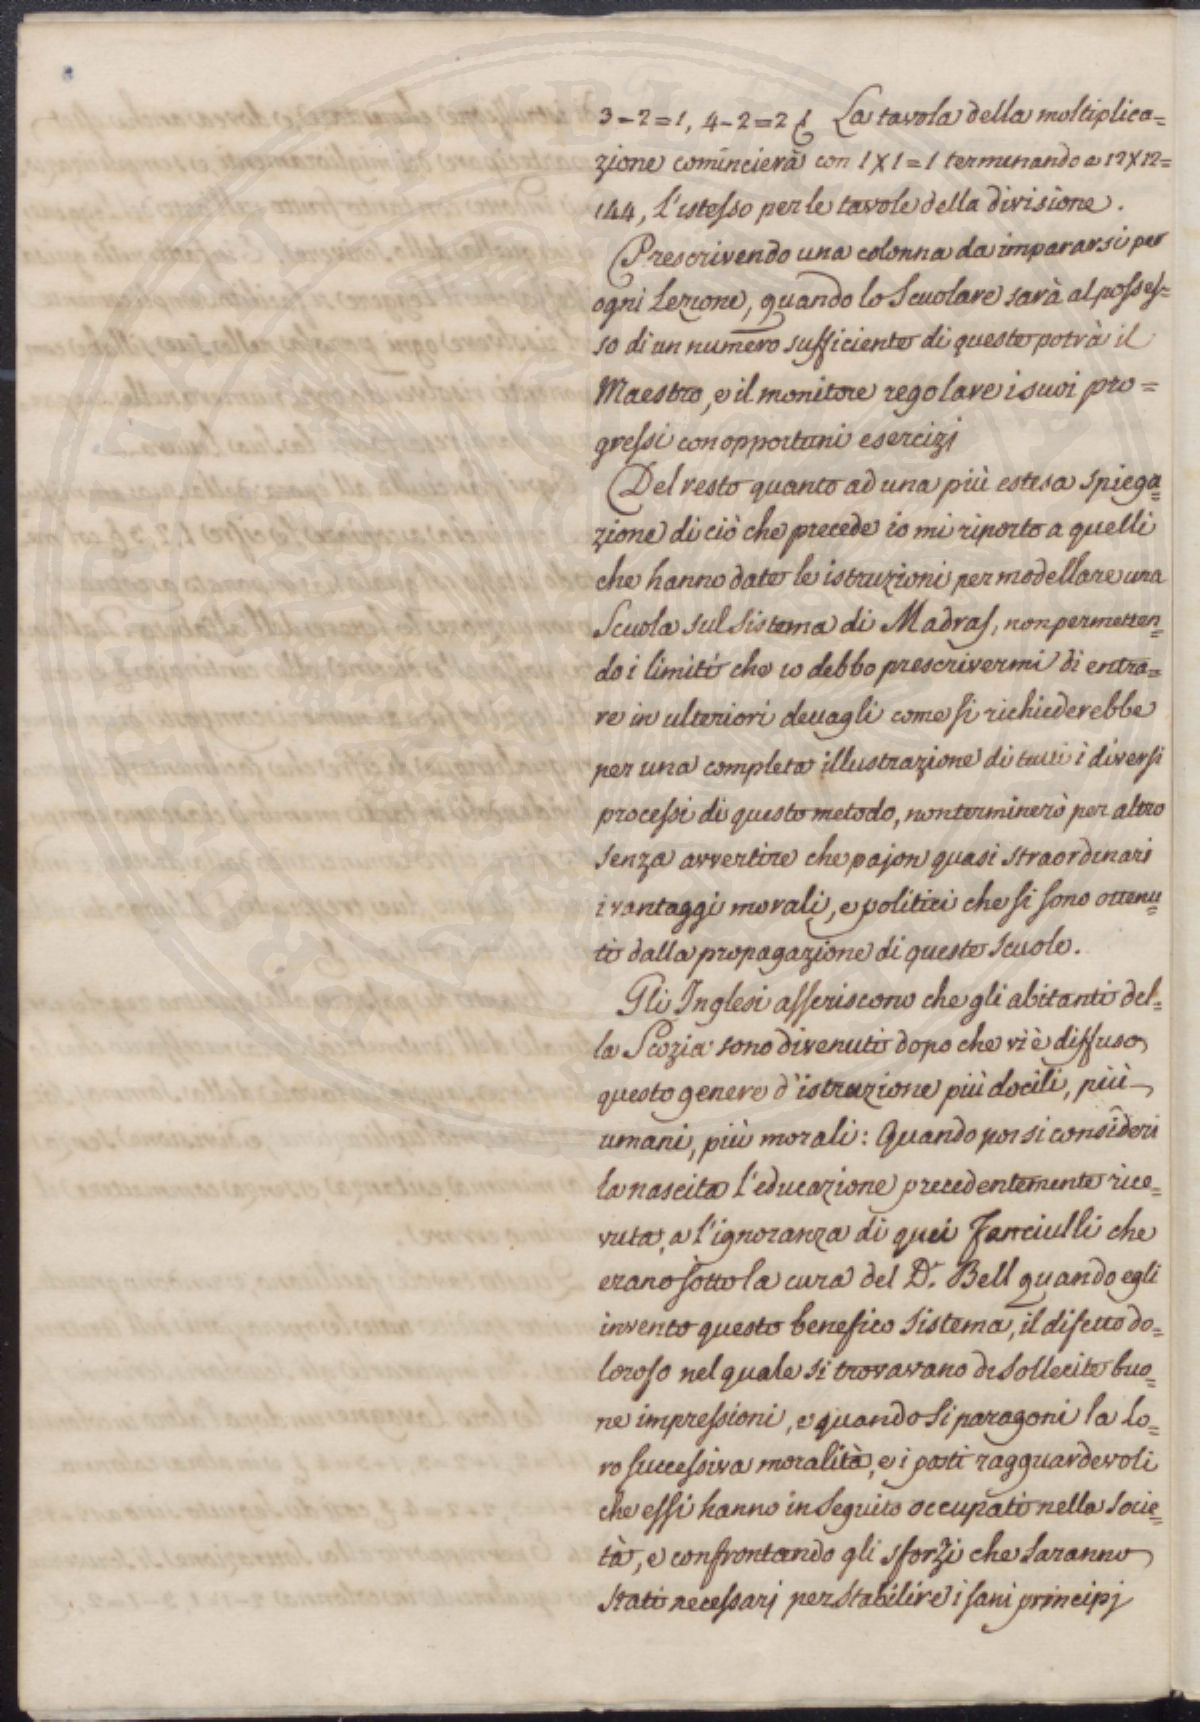 3-2=1, 4-2=2 & La tavola della moltiplica=
zione comincierà con 1X1=1 terminando a 12X12=
144, l'istesso per le tavole della divisione.
Prescrivendo una colonna da impararsi per
ogni Lezione, quando lo Scuolare sarà al posses=
so di un numero sufficiente di queste potrà il
Maestro, e il monitore regolare i suoi pro=
gressi con opportuni esercizj
Del resto quanto ad una più estesa spiega=
zione di ciò che precede io mi riporto a quelli
che hanno date le istruzioni per modellare una
Scuola sul Sistema di Madras, non permetten=
do i limiti che io debbo prescrivermi di entra=
re in ulteriori dettagli come si richiederebbe
per una completa illustrazione di tutti i diversi
processi di questo metodo, non terminerò per altro
senza avvertire che pajon quasi straordinari
i vantaggi morali, e politici che si sono ottenu=
ti dalla propagazione di queste Scuole.
Gli Inglesi asseriscono che gli abitanti del=
la Scozia sono divenuti dopo che vi è diffuso
questo genere d'istruzione più docili, più
umani, più morali: Quando poi si consideri
la nascita l'educazione precedentemente rice=
vuta, a l'ignoranza di quei Fanciulli che
erano sotto la cura del Dr. Bell quando egli
inventò questo benefico Sistema, il difetto do=
loroso nel quale si trovavano di sollecite buo=
ne impressioni, e quando si paragoni la lo=
ro successiva moralità, e i posti ragguardevoli
che essi hanno in Seguito occupati nella Socie=
tà, e confrontando gli sforzi che saranno
stati necessarj per stabilire i sani principj